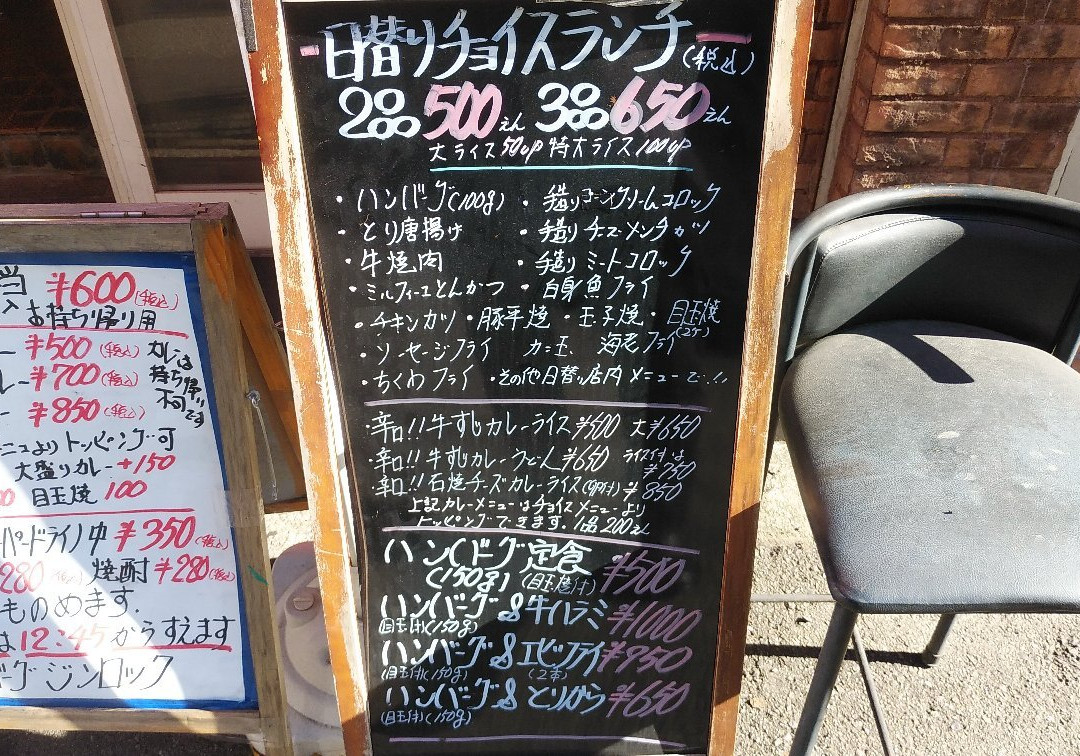 日替りチョイスランチ(税込)
2品500えん 3品650えん
大ライス50up 特大ライス100up
・ハンバーグ(100g) ・手造りコーンクリームコロック
・とり唐揚げ ・手造りチーズメンチカツ
・牛焼肉 ・手造りミートコロック
・ミルフィーユとんかつ ・白身魚フライ
・チキンカツ・豚平焼・玉子焼・目玉焼(2ケ)
・ソーセージフライ カニ玉 海老フライ
・ちくわフライ ・その他日替り店内メニューで
・辛口!!牛すじカレーライス¥500 大¥650
・辛口!!牛すじカレーうどん¥650 ライス付は¥750
・辛口!!石焼チーズカレーライス ¥850
上記カレーメニューはチョイスメニューより
トッピングできます。1品200えん
ハンバーグ定食 ¥500
(150g) (目玉焼付)
ハンバーグ&牛ハラミ ¥1000
(目玉付)(150g)
ハンバーグ&エビフライ ¥950
(目玉付)(150g) (2本)
ハンバーグ&とりから ¥650
(目玉付)(150g)
当 ¥600(税込)
入 お持ち帰り用
ー ¥500(税込) カレーは
レー ¥700(税込) 持ち帰り
ー ¥850(税込) 不可です
ニューよりトッピング可
大盛りカレー+150
目玉焼 100
ーパードライ/中 ¥350(税込)
280(税込) 焼酎 ¥280(税込)
ものめます.
は12:45からすえます
バーグ ジンロック